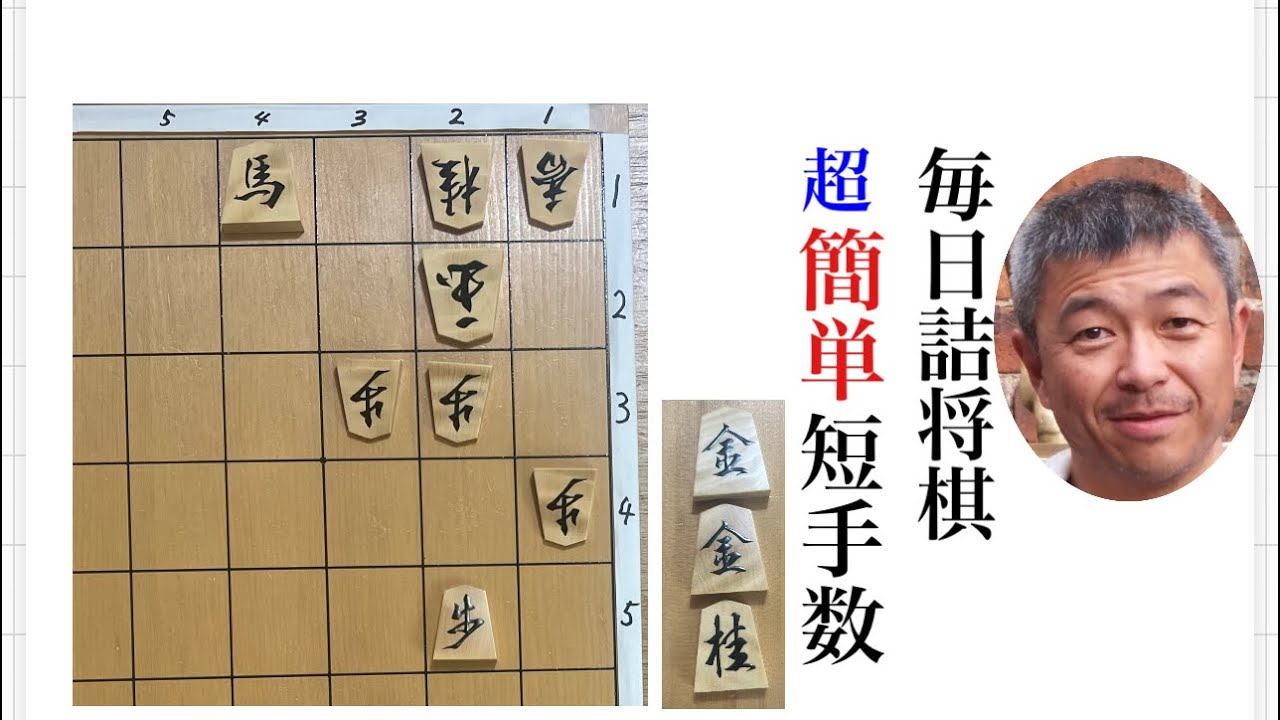 毎日詰将棋
超簡単短手数
5 4 3 2 1
馬 桂 香 1
玉 2
歩 歩 3
歩 4
歩 5
金
金
桂